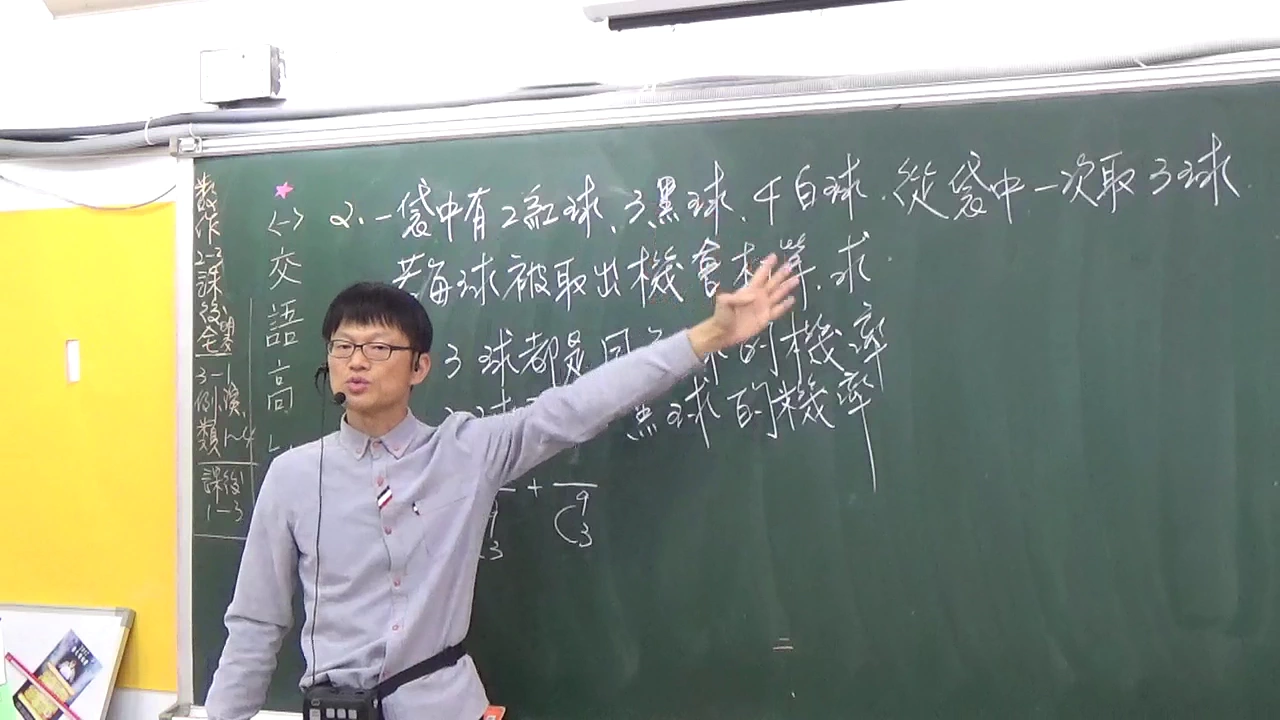 數作
2-2
課後
3-1
例、演、
類1~4
課後
1-3
<->
交
語
高
2. 一袋中有2紅球、3黑球、4白球.從袋中一次取3球.
若每球被取出機會相等.求
3球都是同 的機率
黑球的機率
+
C 9 3
9 3